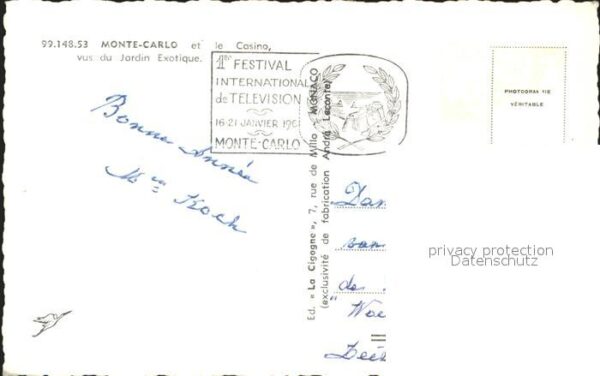 99.148.53 MONTE-CARLO et le Casino,
vus du Jardin Exotique.
1er FESTIVAL
INTERNATIONAL
de TELEVISION
16-21 JANVIER 196
MONTE-CARLO
PHOTOGRAPHIE
VÉRITABLE
Bonne Année
Koch
Ed. « La Cigogne », 7, rue de Millo - MONACO
(exclusivité de fabrication André Leconte)
de
privacy protection
Datenschutz